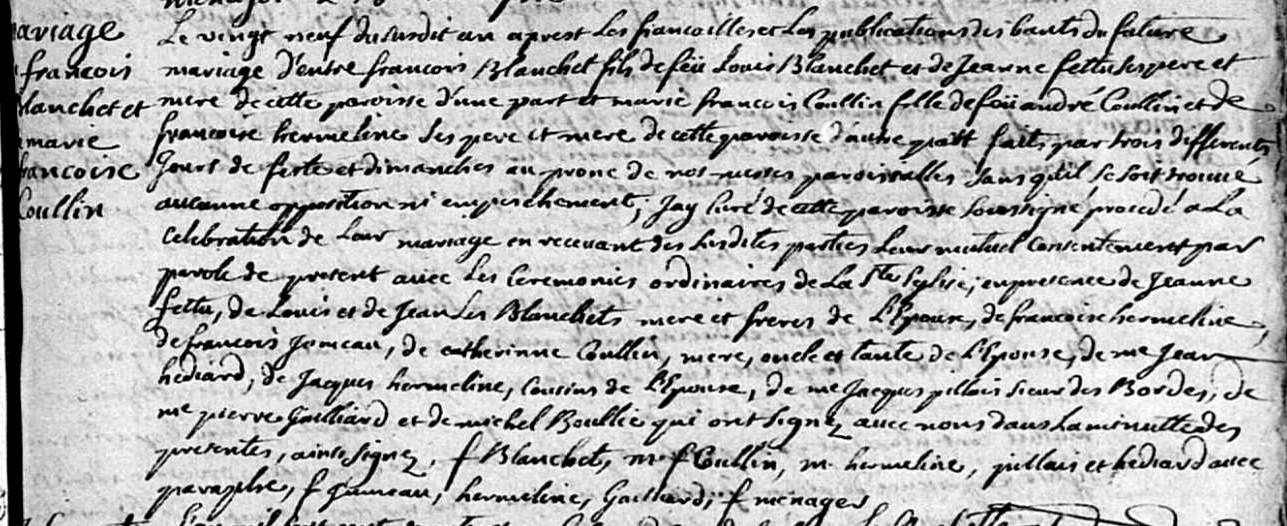 mariage
françois
Blanchet et
marie
francoise
Coullin
Le vingt neuf du susdit an aprest Les francoilles et Les publications des bants du future
mariage d'entre francois Blanchet fils de feu Louis Blanchet et de Jeanne fettu ses pere et
mere de cette paroisse d'une part et marie francois Coullin fille de feu andré Coullin et de
francoise hermeline ses pere et mere de cette paroisse d'autre part faits par trois differents
Jours de feste et dimanches au prone de nos messes paroissialles sans qu'il se soit trouué
aucunne opposition ni empeschement, Jay Curé de cette paroisse soussigné procedé a La
Celebration de Leur mariage en recevant des susdites parties Leur mutuel Consentement par
parole de present avec Les Ceremonies ordinaires de La Ste Eglise; en presence de Jeanne
fettu, de Louis et de Jean Les Blanchets mere et freres de L'Epoux, de francoise hermeline,
de francois Jumeau, de catherinne Coullin, mere, oncle et tante de L'Epouse, de me Jean
hediard, de Jacques hermeline, Cousins de L'Epouse, de me Jacques pillais sieur des Bordes, de
me pierre Galliard et de michel Boullie qui ont signez avec nous dans La minutte des
presentes, ainsi signez, f Blanchet, m f Coullin, m hermeline, pillais et hediard avec
paraphe, f Jumeau, hermeline, Galliard, f menager